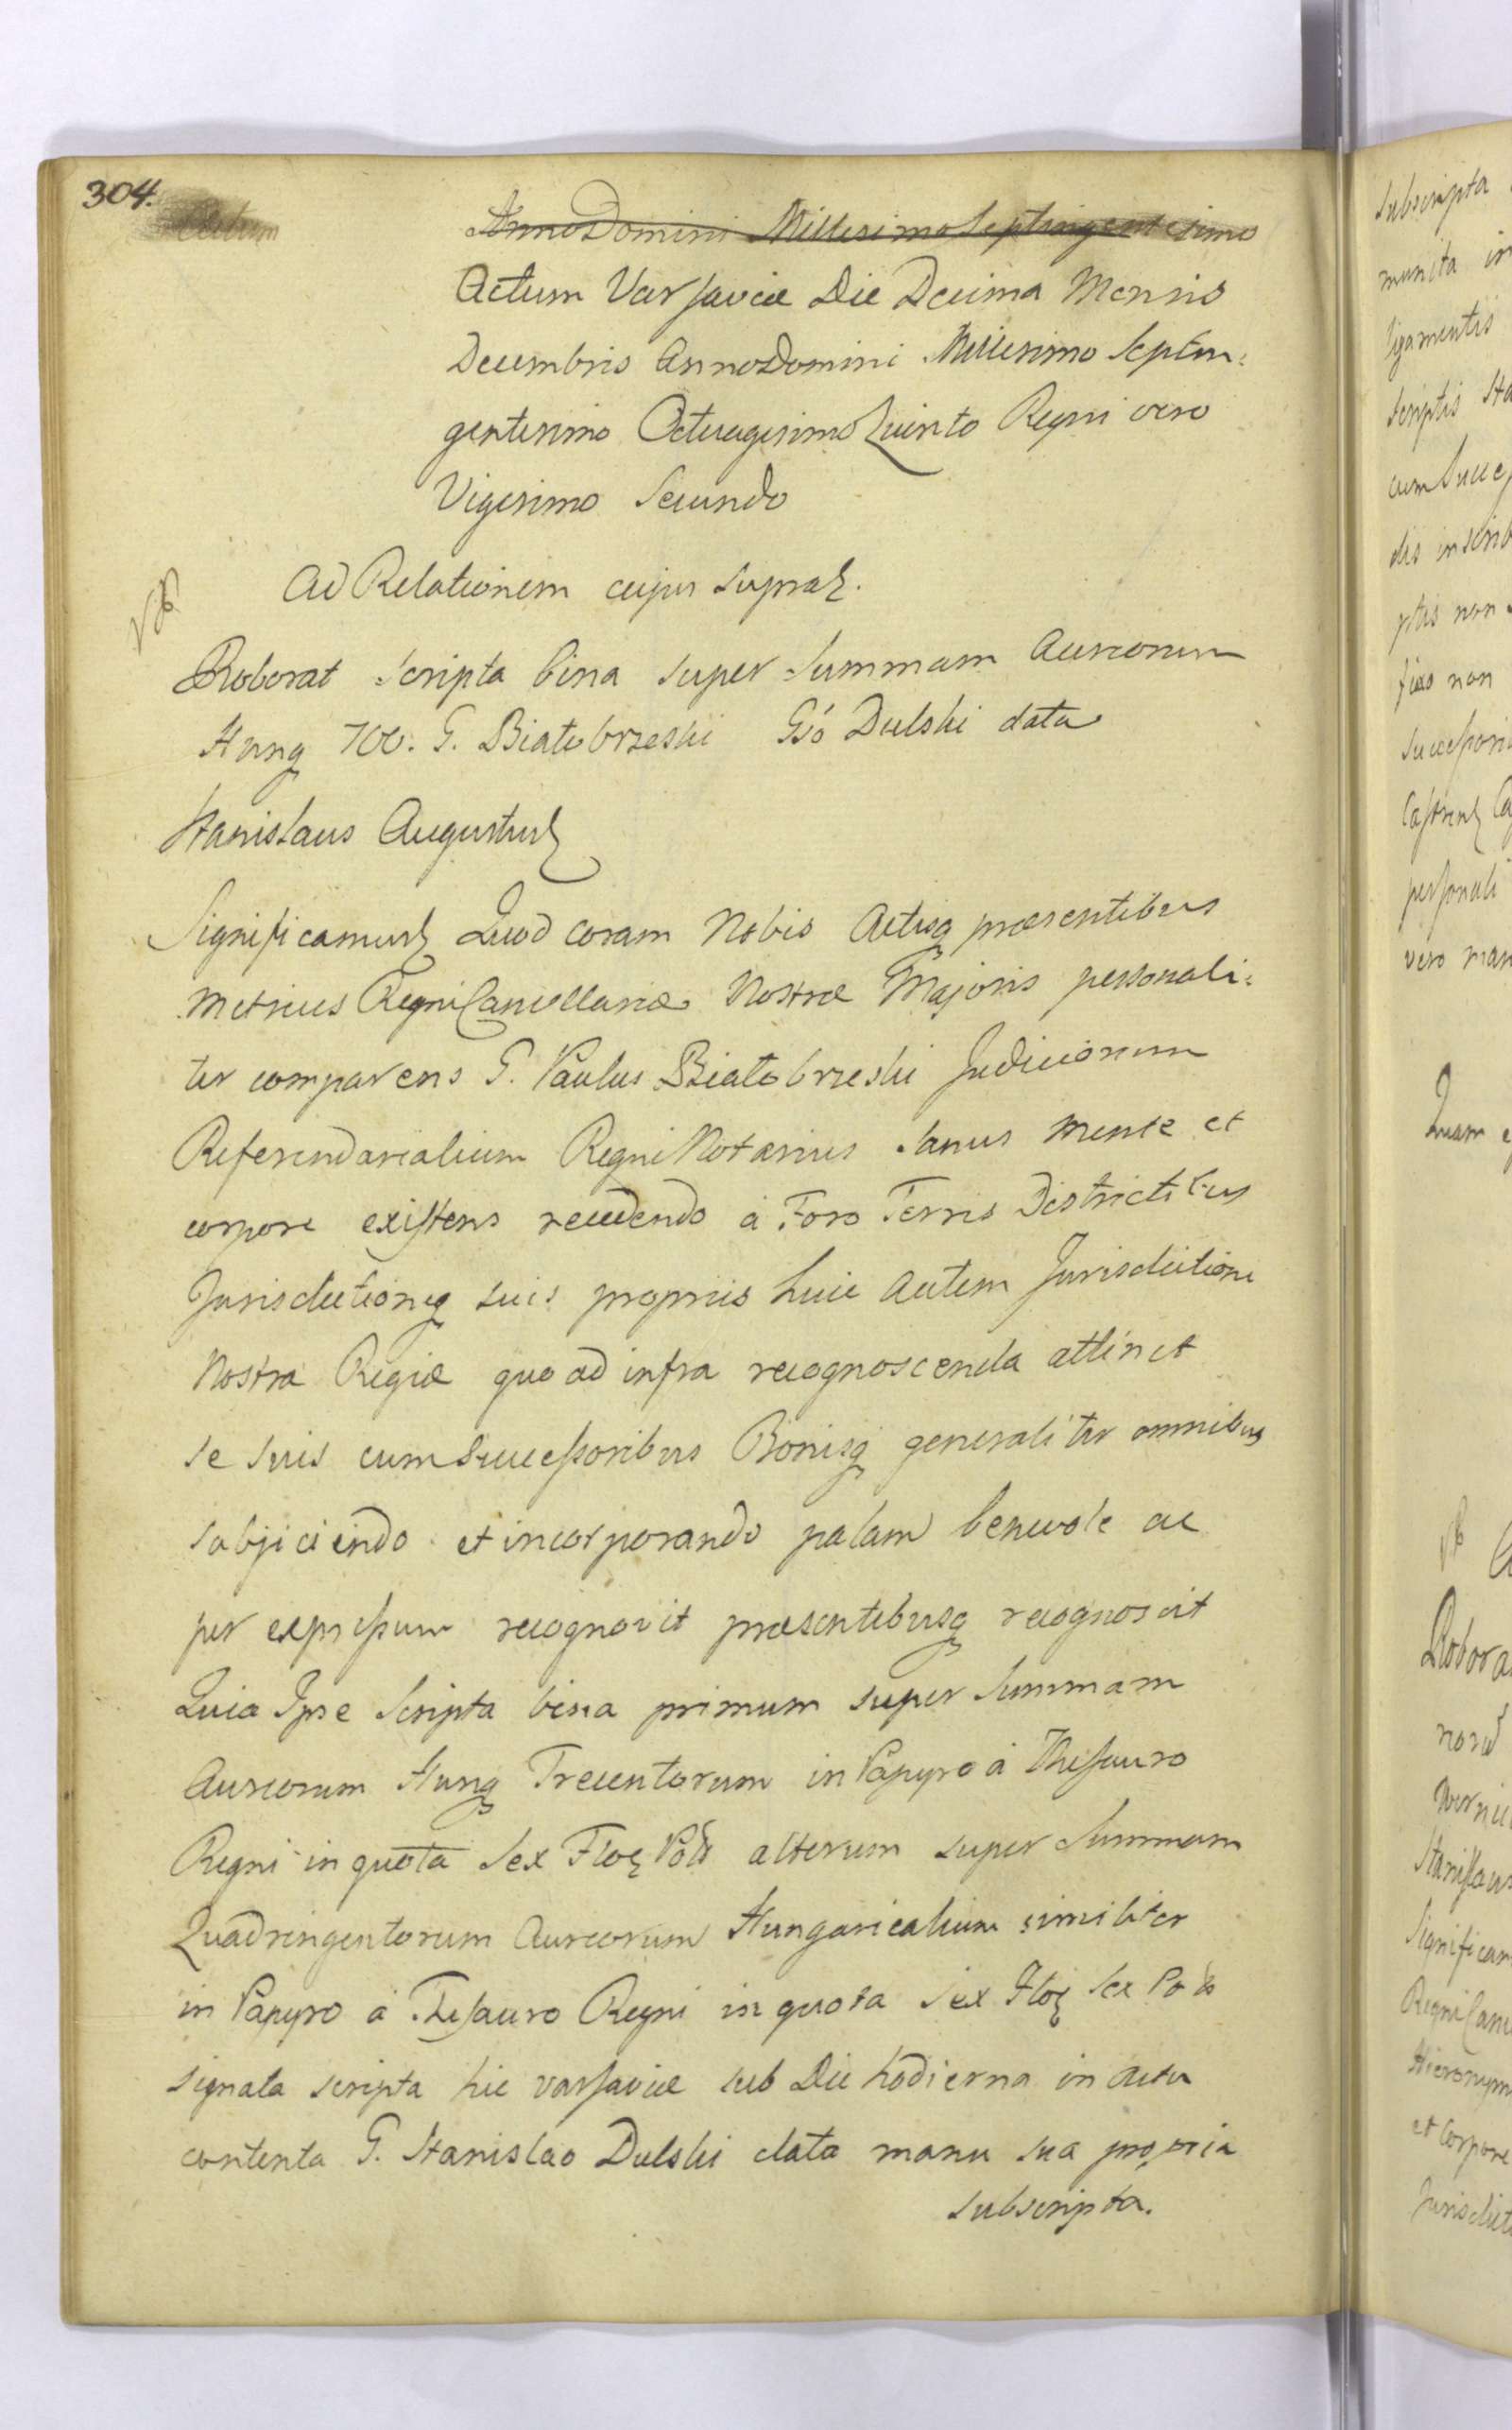 304.
Actum
Anno Domini Millesimo Septingentesimo
Actum Varsaviæ Die Decima Mensis
Decembris Anno Domini Millesimo Septin:
gentesimo Octuagesimo Quinto Regni vero
Vigesimo Secundo
Ad Relationem cujus supra.
Roborat Scripta bina super Summam Aureorum
Hung 700. G. Białobrzeski Gsó Dulski data
Stanislaus Augustus
Significamus Quod coram Nobis Actisq præsentibus
Metrices Regni Cancellariæ Nostræ Majoris personali:
ter comparens G. Paulus Białobrzeski Judiciorum
Referendarialium Regni Notarius sanus mente et
corpore existens recedendo à Foro Terris Districtibus
Jurisdictioneq suis propriis huic autem Jurisdictioni
Nostræ Regiæ quo ad infra recognoscenda attinet
se suis cum Successoribus Bonisq generaliter omnibus
subjiciendo et incorporando palam benevole ac
per expressum recognovit præsentibusq recognoscit
Quia Ipse Scripta bina primum super Summam
Aureorum Hung Trecentorum in Papyro à Thesauro
Regni in quota Sex Flor Pol alterum super Summam
Quadringentorum Aureorum Hungaricalium similiter
in Papyro à Thesauro Regni in quota Sex Flor Sex Pol
signata scripta hic Varsaviæ sub Die hodierna in actu
contenta G. Stanislao Dulski data manu sua propria
subscripta.
subscripta
munita
ligamentis
scriptis
ptis non
fias non
personali
vero
Quam
Robora
Significam
Hieronym
et Corpore